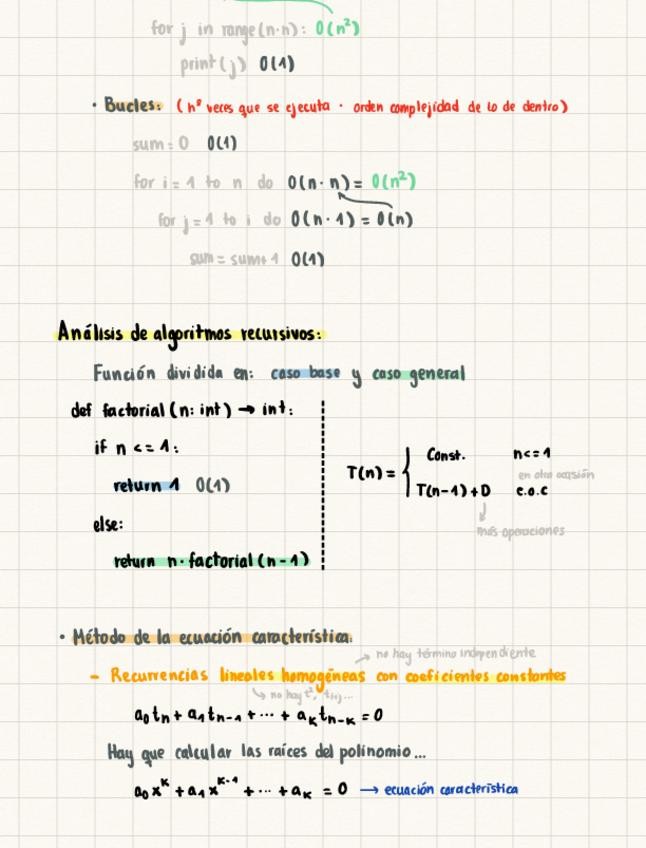 for j in range(n·n): O(n²)
print(j) O(1)
· Bucles: (nº veces que se ejecuta · orden complejidad de lo de dentro)
sum = 0 O(1)
for i = 1 to n do O(n·n) = O(n²)
for j = 1 to i do O(n·1) = O(n)
sum = sum+1 O(1)
Análisis de algoritmos recursivos:
Función dividida en: caso base y caso general
def factorial (n: int) → int:
if n <= 1:
return 1 O(1)
else:
return n·factorial (n-1)
T(n) = { Const. n<=1
en otra ocasión
T(n-1)+D e.o.c
más operaciones
· Método de la ecuación característica:
→ no hay término independiente
- Recurrencias lineales homogéneas con coeficientes constantes
↳ no hay t²,
a₀tₙ + a₁tₙ₋₁ + ··· + aₖtₙ₋ₖ = 0
Hay que calcular las raíces del polinomio...
a₀xᵏ + a₁xᵏ⁻¹ + ··· + aₖ = 0 → ecuación característica